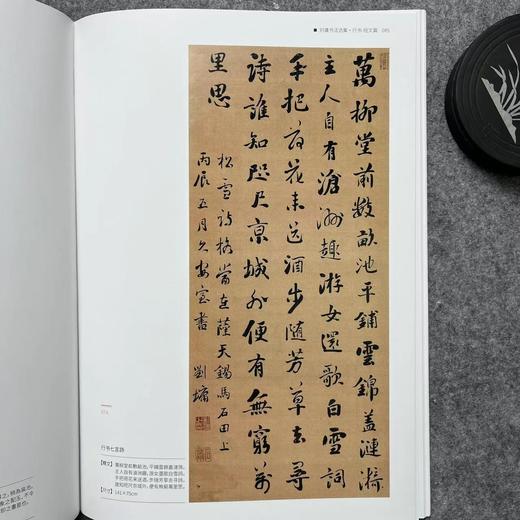 萬柳堂前数畝池平鋪雲錦蓋漣漪
主人自有滄洲趣游女還歌白雪詞
手把荷花来送酒步隨芳草去尋
詩誰知咫尺京城外便有無窮萬
里思
松雪詩格當在薩天錫馬石田上
丙辰五月久安室書 劉墉
行书七言詩
【釋文】萬柳堂前數畝池,平鋪雲錦蓋漣漪。
主人自有滄洲趣,游女還歌白雪詞。
手把荷花来送酒,步隨芳草去尋詩。
誰知咫尺京城外,便有無窮萬里思。
【尺寸】141×75cm